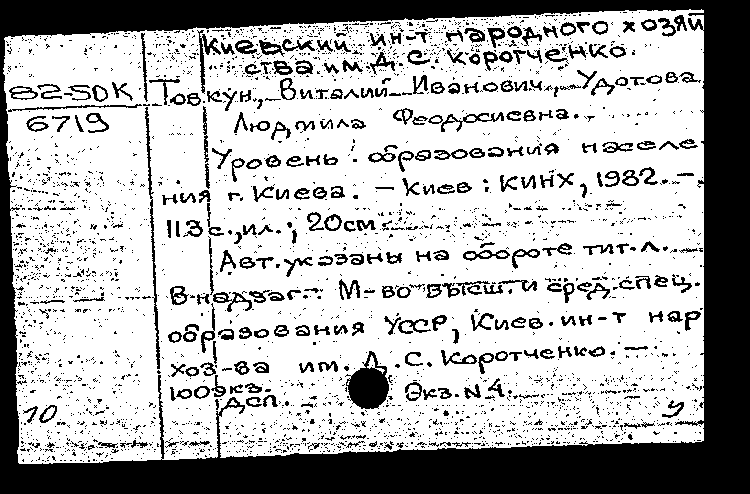 Киевский ин-т народного хозяй
ства им. Д. С. Коротченко.
82-5ДК
6719
Товкун, Виталий Иванович, Удотова
Людмила Феодосиевна.
Уровень образования населе-
ния г. Киева. - Киев : КИНХ, 1982. -
113 с., ил. ; 20см
Авт. указаны на обороте тит. л.
В надзаг.: М-во высш. и сред. спец.
образования УССР, Киев. ин-т нар
хоз-ва им. Д. С. Коротченко. -
100экз.
ДСП. Экз. N 4.
10
У